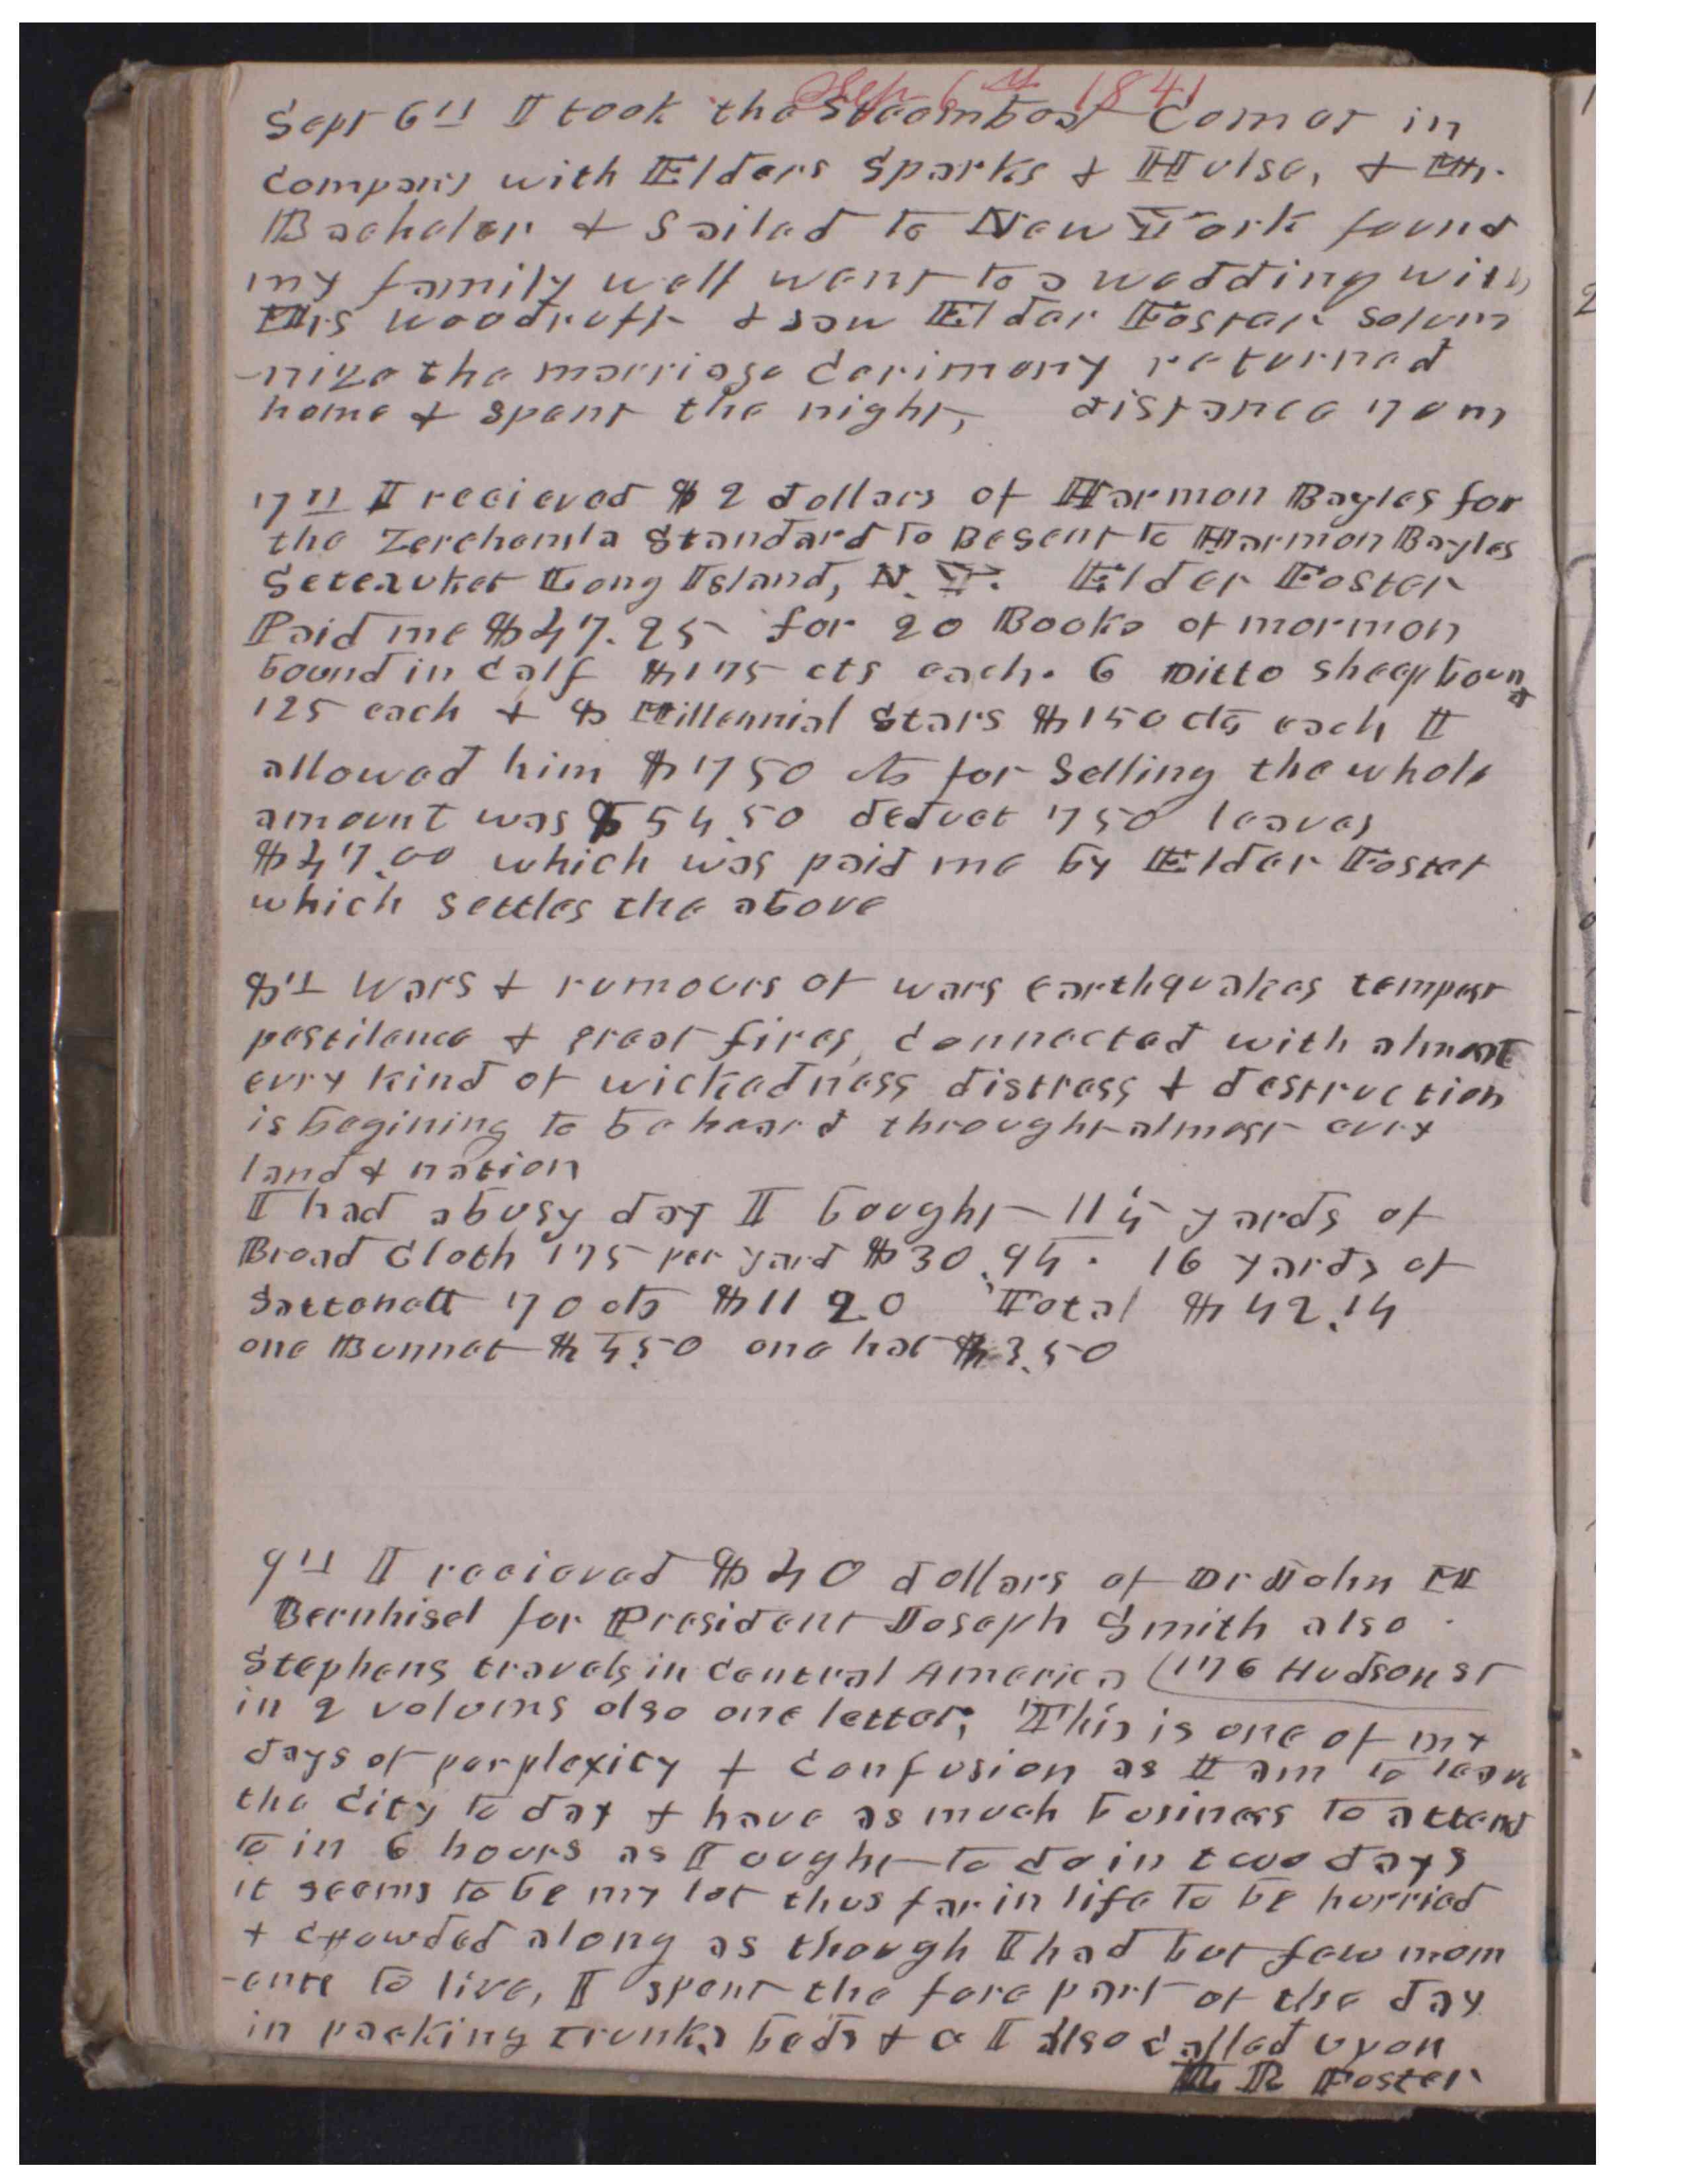 Sep 6th 1841
Sept 6th I took the Steemboat Comet in
company with Elders Sparks & Hulse, & Mr.
Bacheler & Sailed to New York found
my family well went to a wedding with
Mrs Woodruff & saw Elder Foster solum
-nize the marriage Cerimony returned
home & spent the night, distance 70 m
7th I recieved $2 dollars of Harmon Bayles for
the Zerehemla Standard to Be sent to Harmon Bayles
Seteauket Long Island, N. Y. Elder Foster
Paid me $47.25 for 20 Books of mormon
bound in Calf $175 cts each. 6 Ditto sheep bound
125 each & 8 Millennial Stars $150 cts each I
allowed him $750 cts for Selling the whole
amount was $54.50 deduct 750 leaves
$47.00 which was paid me by Elder Foster
which settles the above
8th Wars & rumours of wars earthquakes tempest
pestilence & great fires, connected with almost
evry kind of wickedness distress & destruction
is begining to be heard through almost evry
land & nation
I had a busy day I bought 11 5 yards of
Broad Cloth 175 per yard $30.94. 16 yards of
Sattenett 70 cts $11 20 Total $42.14
one Bunnet $4.50 one hat $3.50
9th I recieved $40 dollars of Dr John M
Bernhisel for President Joseph Smith also
Stephens travels in Central America (176 Hudson st
in 2 volums also one letter; This is one of my
days of perplexity & Confusion as I am to leave
the City to day & have as much business to attend
to in 6 hours as I ought to do in two days
it seems to be my lot thus far in life to be hurried
& crowded along as though I had but few mom
-ents to live, I spent the fore part of the day
in packing trunks beds & c I also called upon
L R Foster